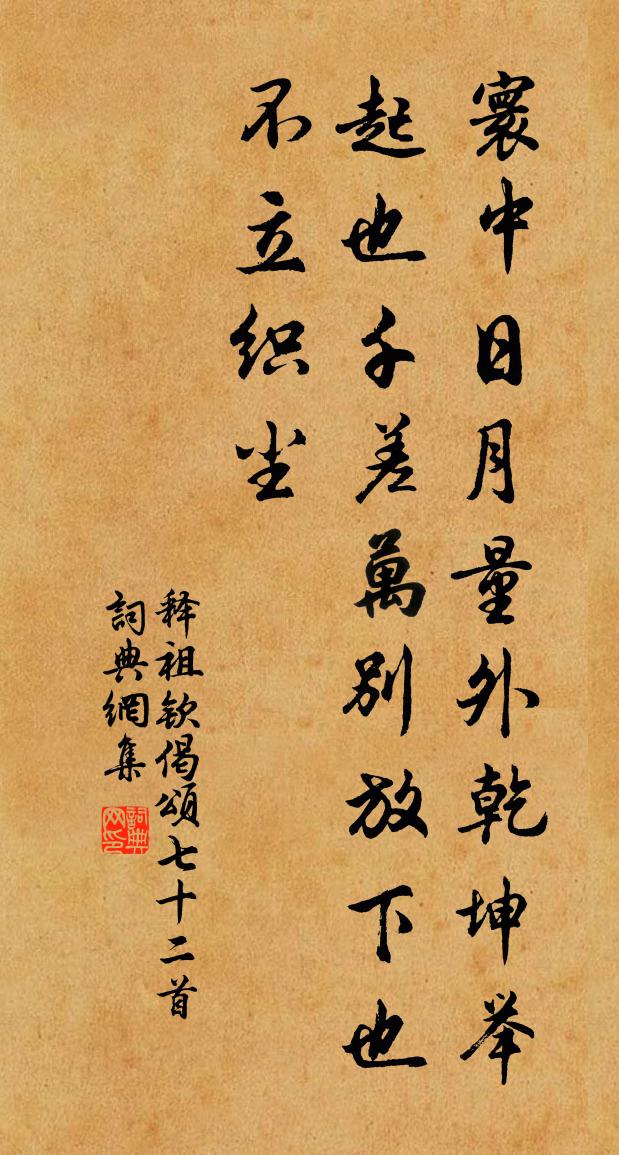 寰中日月量外乾坤举
起也千差萬别放下也
不立织尘
释祖钦偈頌七十二首
詞典網集
詞典网印